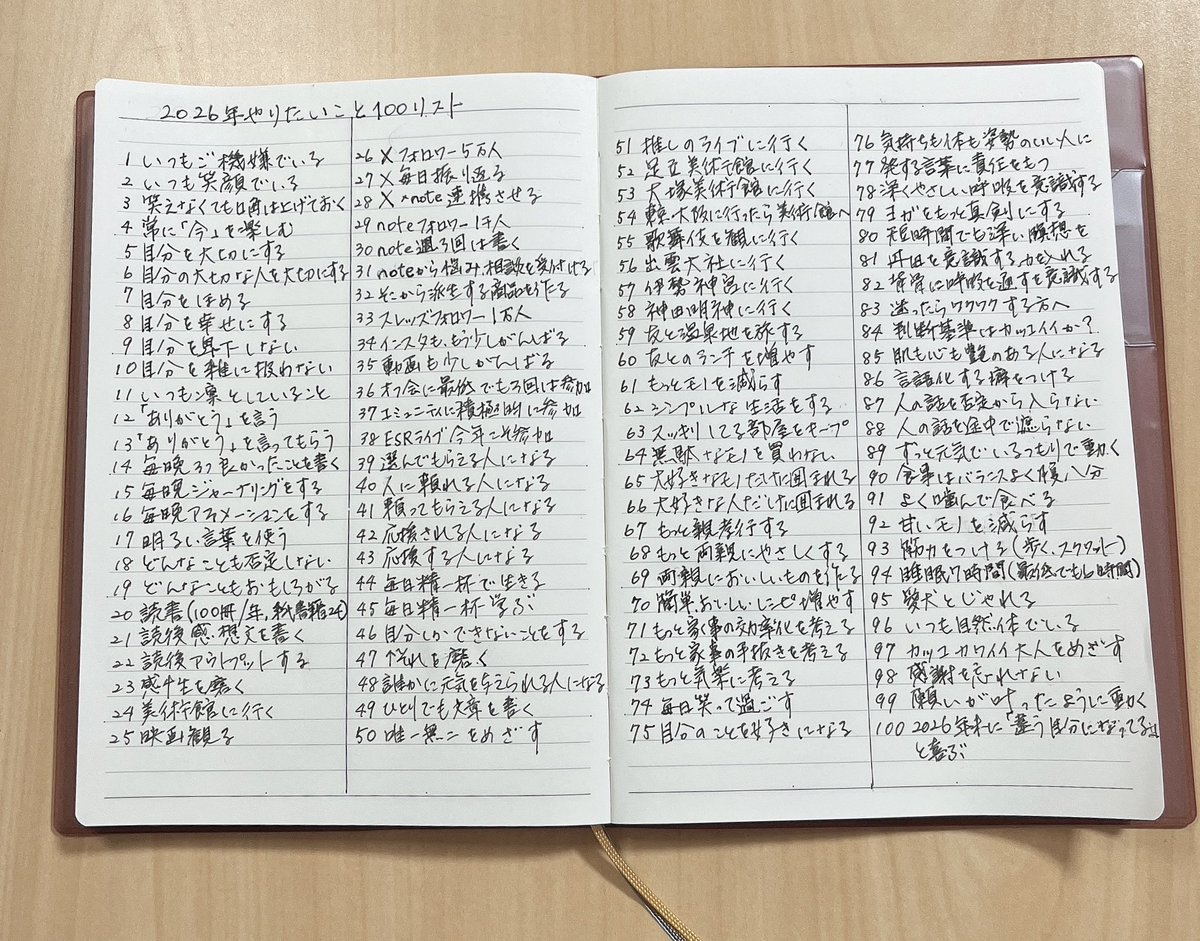 2026年やりたいこと100リスト
1 いつもご機嫌でいる
2 いつも笑顔でいる
3 笑えなくても口角は上げておく
4 常に「今」を楽しむ
5 自分を大切にする
6 自分の大切な人を大切にする
7 自分をほめる
8 自分を幸せにする
9 自分を卑下しない
10 自分を雑に扱わない
11 いつも凛としていること
12 「ありがとう」を言う
13 「ありがとう」を言ってもらう
14 毎晩3つ良かったことを書く
15 毎晩ジャーナリングをする
16 毎晩アファメーションをする
17 明るい言葉を使う
18 どんなことも否定しない
19 どんなこともおもしろがる
20 読書(100冊/年,紙書籍24)
21 読後感想文を書く
22 読後アウトプットする
23 感性を磨く
24 美術館に行く
25 映画観る
26 Xフォロワー5万人
27 X毎日振り返る
28 X×note連携させる
29 noteフォロワー1千人
30 note週3回は書く
31 noteから悩み相談を受け付ける
32 そこから派生する商品を作る
33 スレッズフォロワー1万人
34 インスタも、もう少しがんばる
35 動画も少しがんばる
36 オフ会に最低でも3回は参加
37 コミュニティに積極的に参加
38 ESRライブ今年こそ参加
39 選んでもらえる人になる
40 人に頼れる人になる
41 頼ってもらえる人になる
42 応援される人になる
43 応援する人になる
44 毎日精一杯で生きる
45 毎日精一杯学ぶ
46 自分しかできないことをする
47 ↑それを磨く
48 誰かに元気を与えられる人になる
49 ひとりでも文章を書く
50 唯一無二をめざす
51 推しのライブに行く
52 足立美術館に行く
53 大塚美術館に行く
54 東京・大阪に行ったら美術館へ
55 歌舞伎を観に行く
56 出雲大社に行く
57 伊勢神宮に行く
58 神田明神に行く
59 友と温泉地を旅する
60 友とのランチを増やす
61 もっとモノを減らす
62 シンプルな生活をする
63 スッキリしてる部屋をキープ
64 無駄なモノを買わない
65 大好きなモノだけに囲まれる
66 大好きな人だけに囲まれる
67 もっと親孝行する
68 もっと両親にやさしくする
69 両親においしいものを作る
70 簡単、おいしいレシピ増やす
71 もっと家事の効率化を考える
72 もっと家事の手抜きを考える
73 もっと気楽に考える
74 毎日笑って過ごす
75 自分のことを好きになる
76 気持ちも体も姿勢のいい人に
77 発する言葉に責任をもつ
78 深くやさしい呼吸を意識する
79 ヨガをもっと真剣にする
80 短時間でも深い瞑想を
81 丹田を意識する力を入れる
82 背骨に呼吸を通すを意識する
83 迷ったらワクワクする方へ
84 判断基準はカッコイイか?
85 肌も心も艶のある人になる
86 言語化する癖をつける
87 人の話を否定から入らない
88 人の話を途中で遮らない
89 ずっと元気でいるつもりで動く
90 食事はバランスよく腹八分
91 よく噛んで食べる
92 甘いモノを減らす
93 筋力をつける(歩く、スクワット)
94 睡眠7時間(最低でも6時間)
95 愛犬とじゃれる
96 いつも自然体でいる
97 カッコカワイイ大人をめざす
98 感謝を忘れない
99 願いが叶ったように動く
100 2026年末に「違う自分になってる」
と喜ぶ